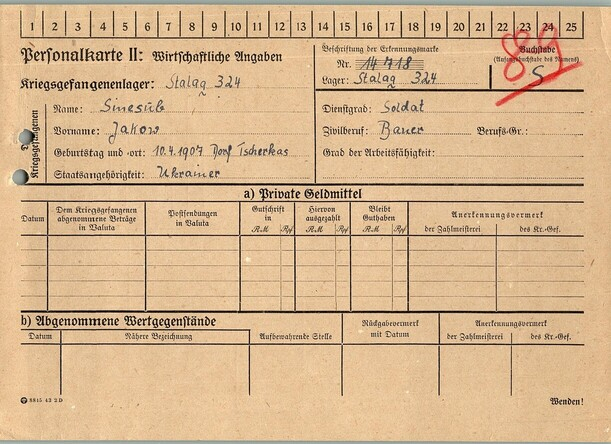 1 2 3 4 5 6 7 8 9 10 11 12 13 14 15 16 17 18 19 20 21 22 23 24 25
Personalkarte II: Wirtschaftliche Angaben
Kriegsgefangenenlager: Stalag 324
Beschriftung der Erkennungsmarke
Nr. 14718
Lager: Stalag 324
Buchstabe
(Anfangsbuchstabe des Namens)
S
89
Des Kriegsgefangenen
Name: Sinesub
Vorname: Jakow
Geburtstag und -ort: 10.4.1907 Dorf Tscherkas
Staatsangehörigkeit: Ukrainer
Dienstgrad: Soldat
Zivilberuf: Bauer Berufs-Gr.:
Grad der Arbeitsfähigkeit:
a) Private Geldmittel
Datum
Dem Kriegsgefangenen abgenommene Beträge in Valuta
Postsendungen in Valuta
Gutschrift in
RM Rpf
Hiervon ausgezahlt
RM Rpf
Bleibt Guthaben
RM Rpf
Anerkennungsvermerk
der Zahlmeisterei des Kr.-Gef.
b) Abgenommene Wertgegenstände
Datum
Nähere Bezeichnung
Aufbewahrende Stelle
Rückgabevermerk mit Datum
Anerkennungsvermerk
der Zahlmeisterei des Kr.-Gef.
8815 42 2 D
Wenden!